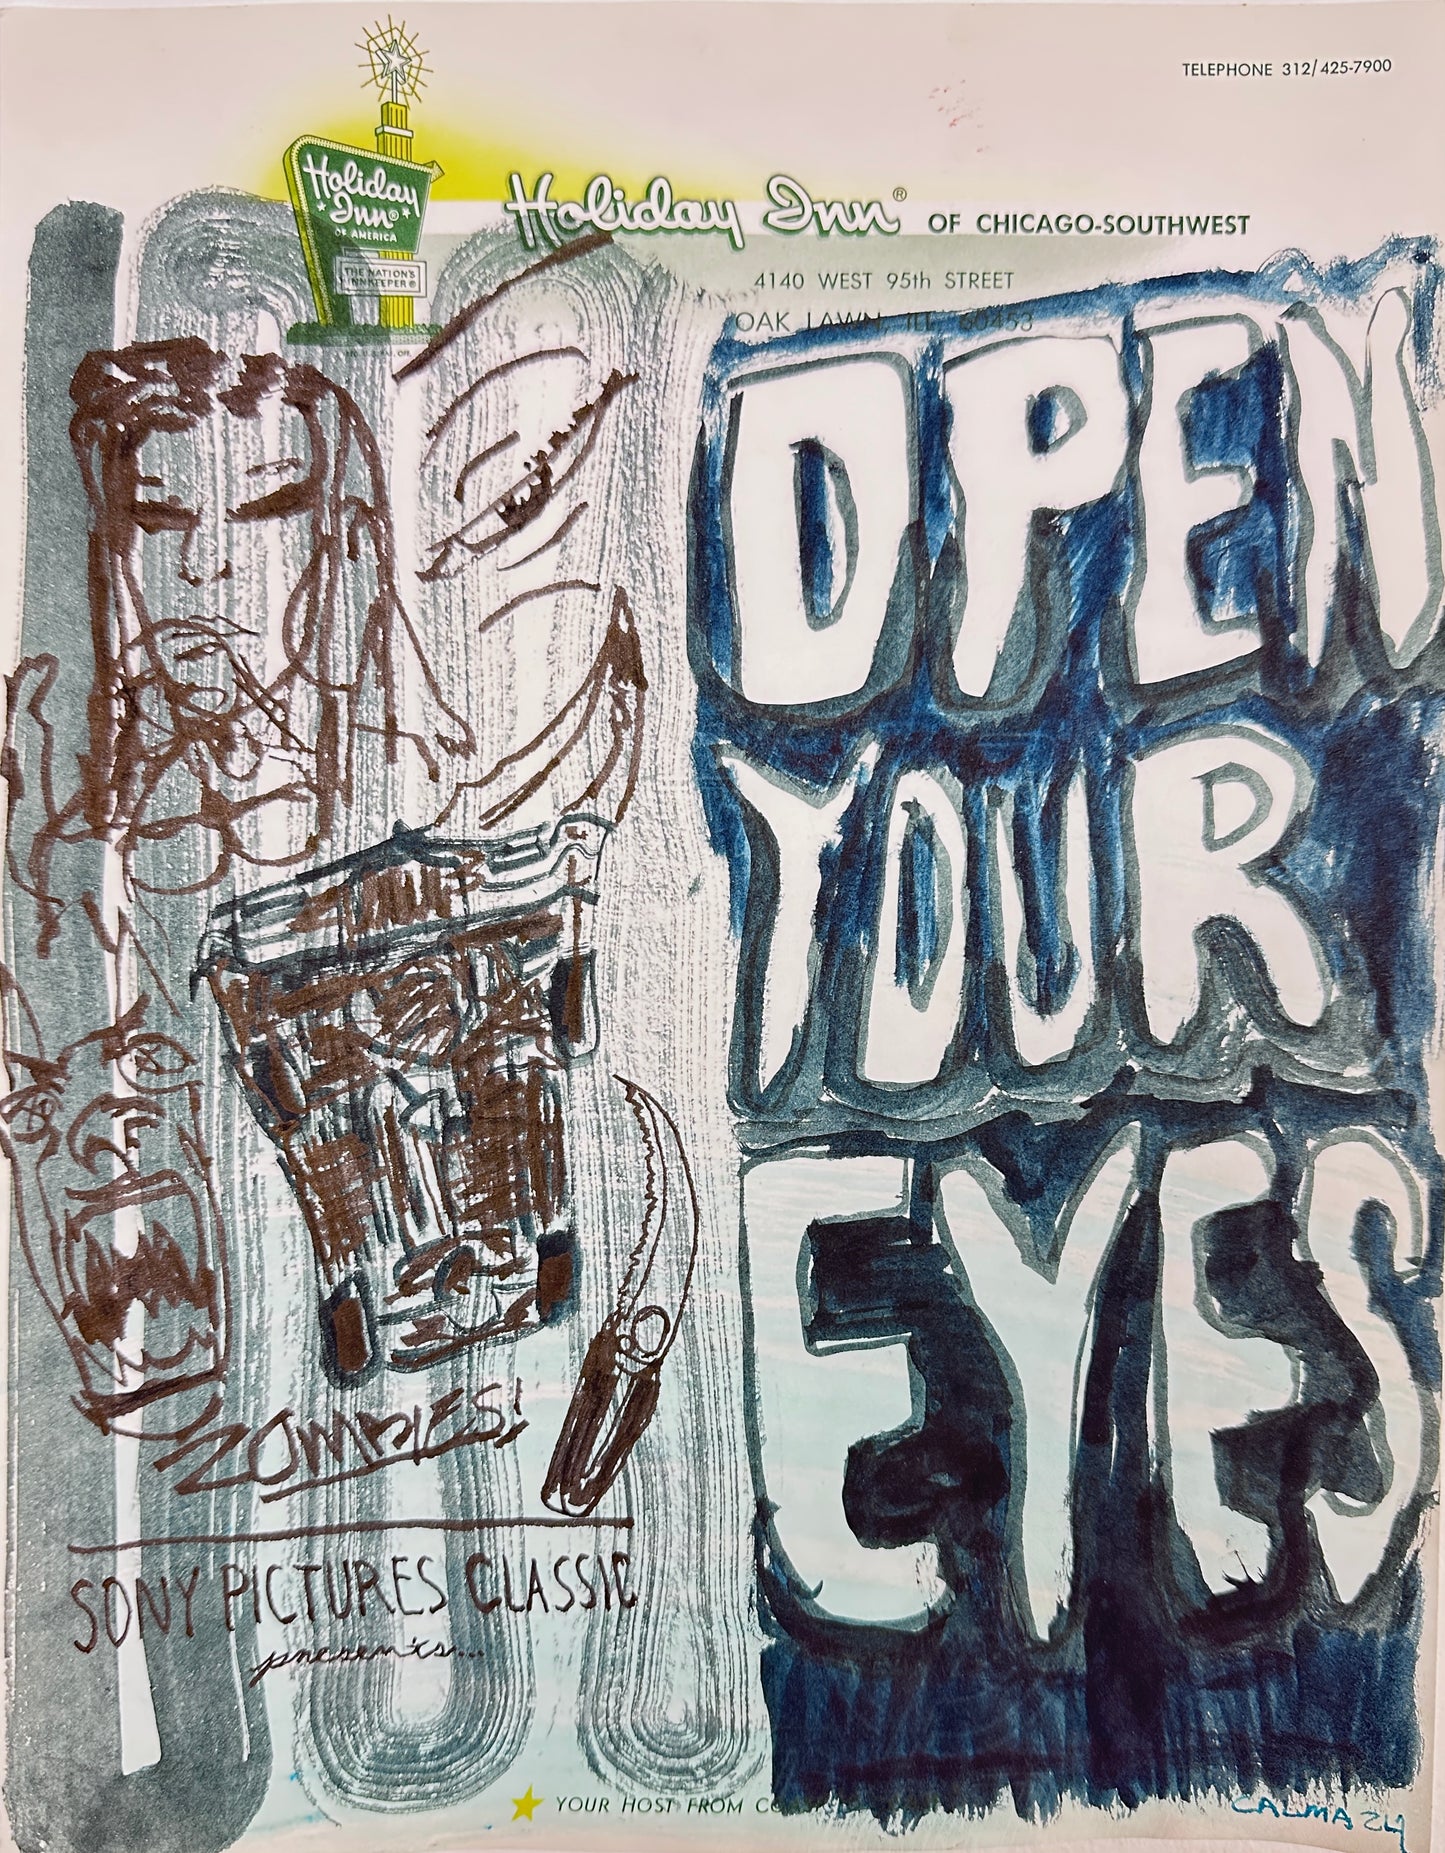 TELEPHONE 312/425-7900
Holiday
Inn®
OF AMERICA
THE NATION'S
INNKEEPER®
Holiday Inn® OF CHICAGO-SOUTHWEST
4140 WEST 95th STREET
OAK LAWN, ILL. 60453
OPEN
YOUR
EYES
ZOMBIES!
SONY PICTURES CLASSIC
presents...
YOUR HOST FROM
CALMA 24